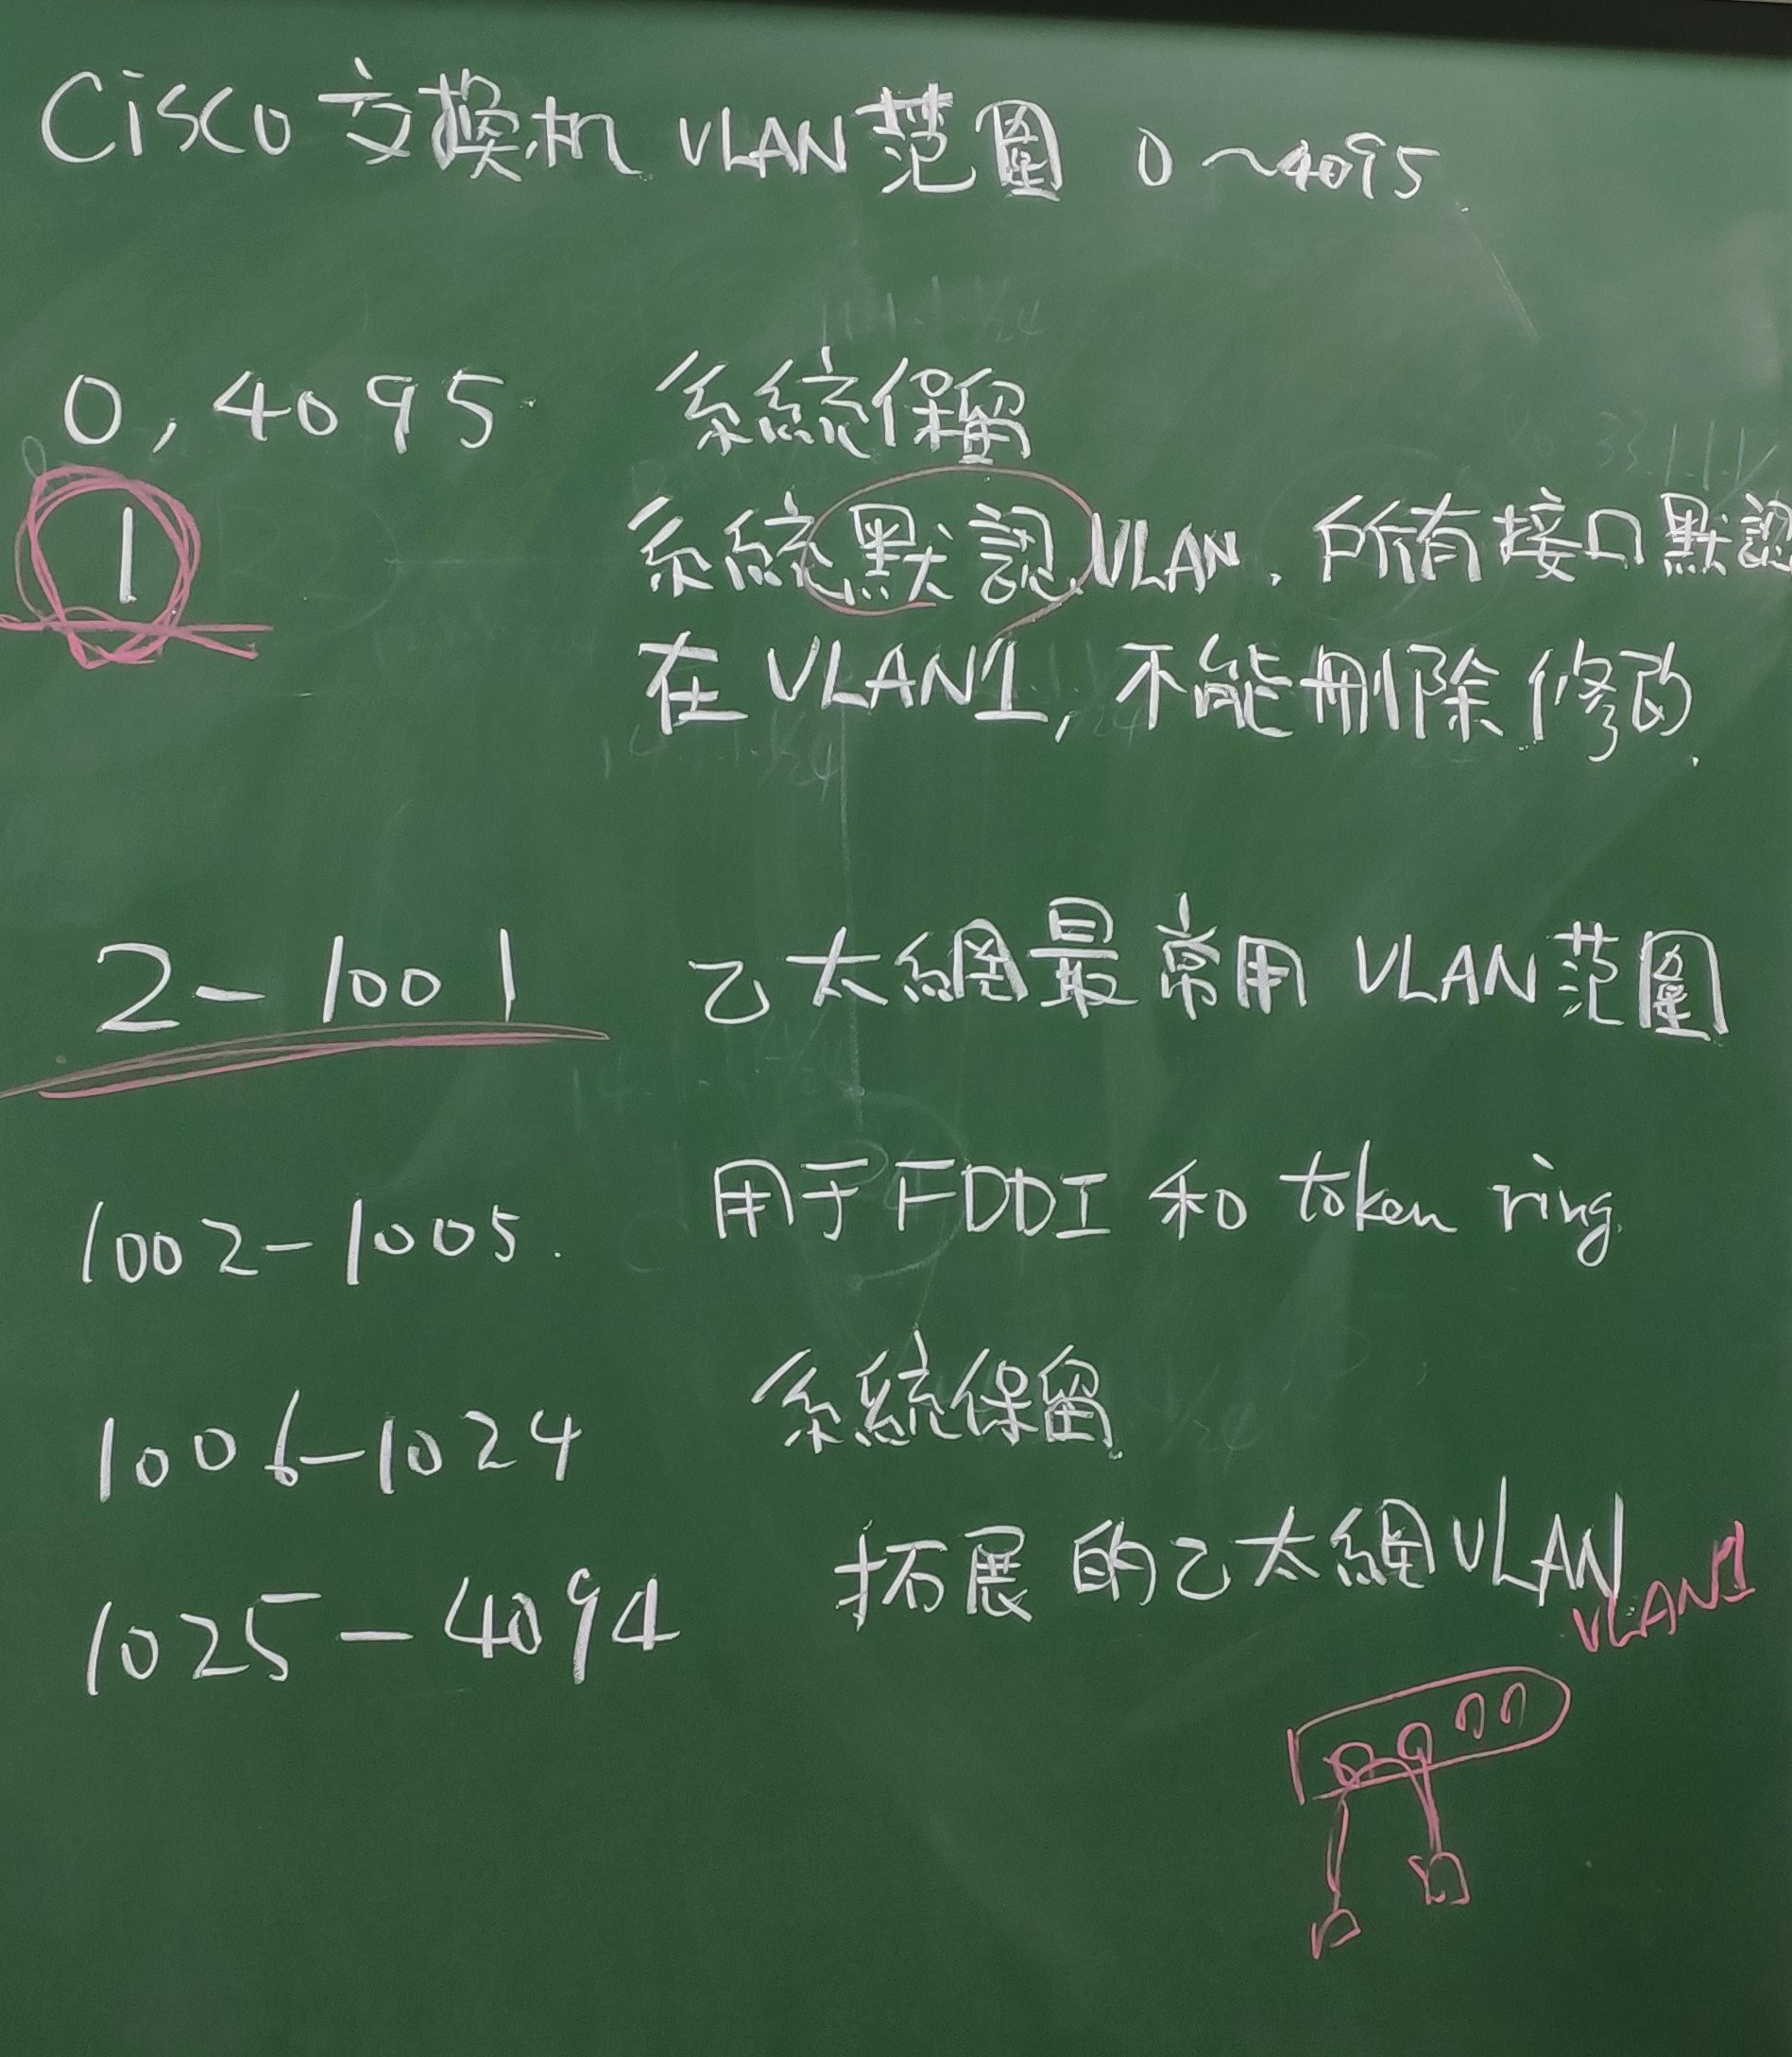 Cisco 交換机 VLAN 范圍 0~4095
0, 4095 系統保留
1 系統默認VLAN. 所有接口默認
在 VLAN1, 不能刪除修改.
2-1001 乙太網最常用 VLAN 范圍
1002-1005. 用于FDDI 和 token ring.
1006-1024 系統保留.
1025-4094 拓展的乙太網VLAN
VLAN1